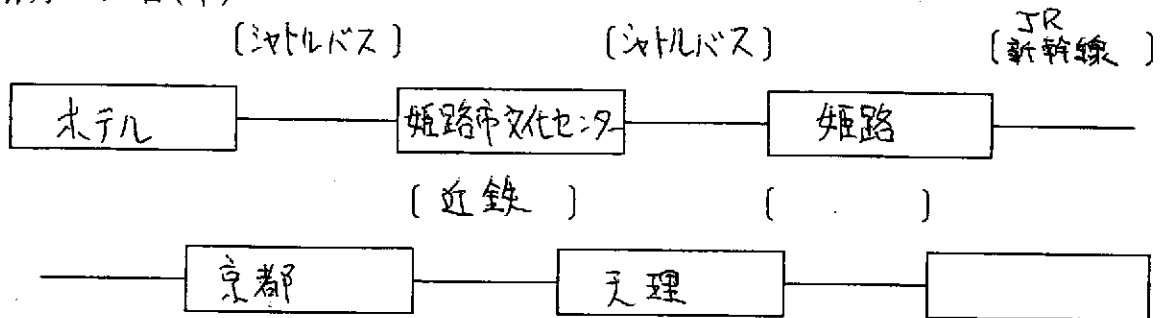 [シャトルバス] [シャトルバス] [JR新幹線]
ホテル 姫路市文化センター 姫路
[近鉄] [ ]
京都 天理